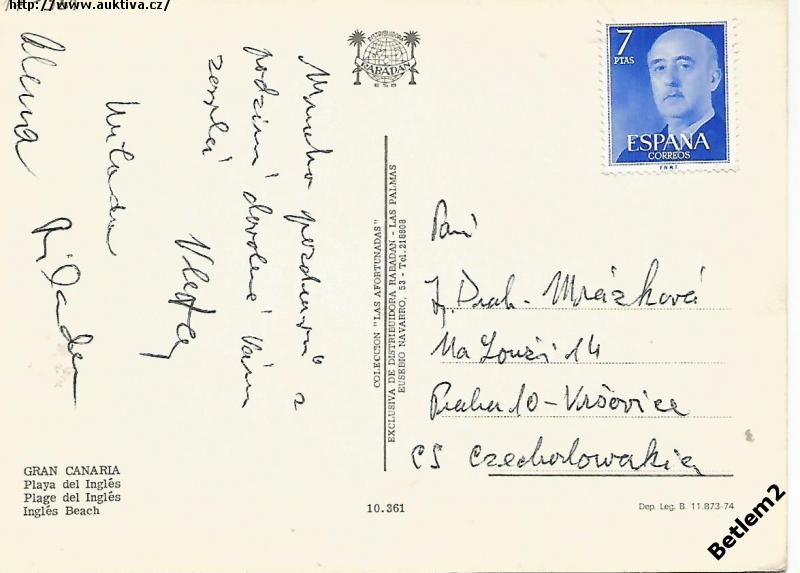 http://www.auktiva.cz/
RABADAN
ESB
7
PTAS
ESPAÑA
CORREOS
F.N.M.T.
Mnoho pozdravů z
podzimní dovolené Vám
zasílá
Vlasta
Milada
Alena
COLECCION "LAS AFORTUNADAS"
EXCLUSIVA DE DISTRIBUIDORA RABADAN - LAS PALMAS
EUSEBIO NAVARRO, 53 - Tel. 218808
Paní
Mrázková
Na Louži 14
Praha 10 - Vršovice
CS Czechoslowakia
GRAN CANARIA
Playa del Inglés
Plage del Inglés
Inglés Beach
10.361
Dep. Leg. B. 11.873-74
Betlem2